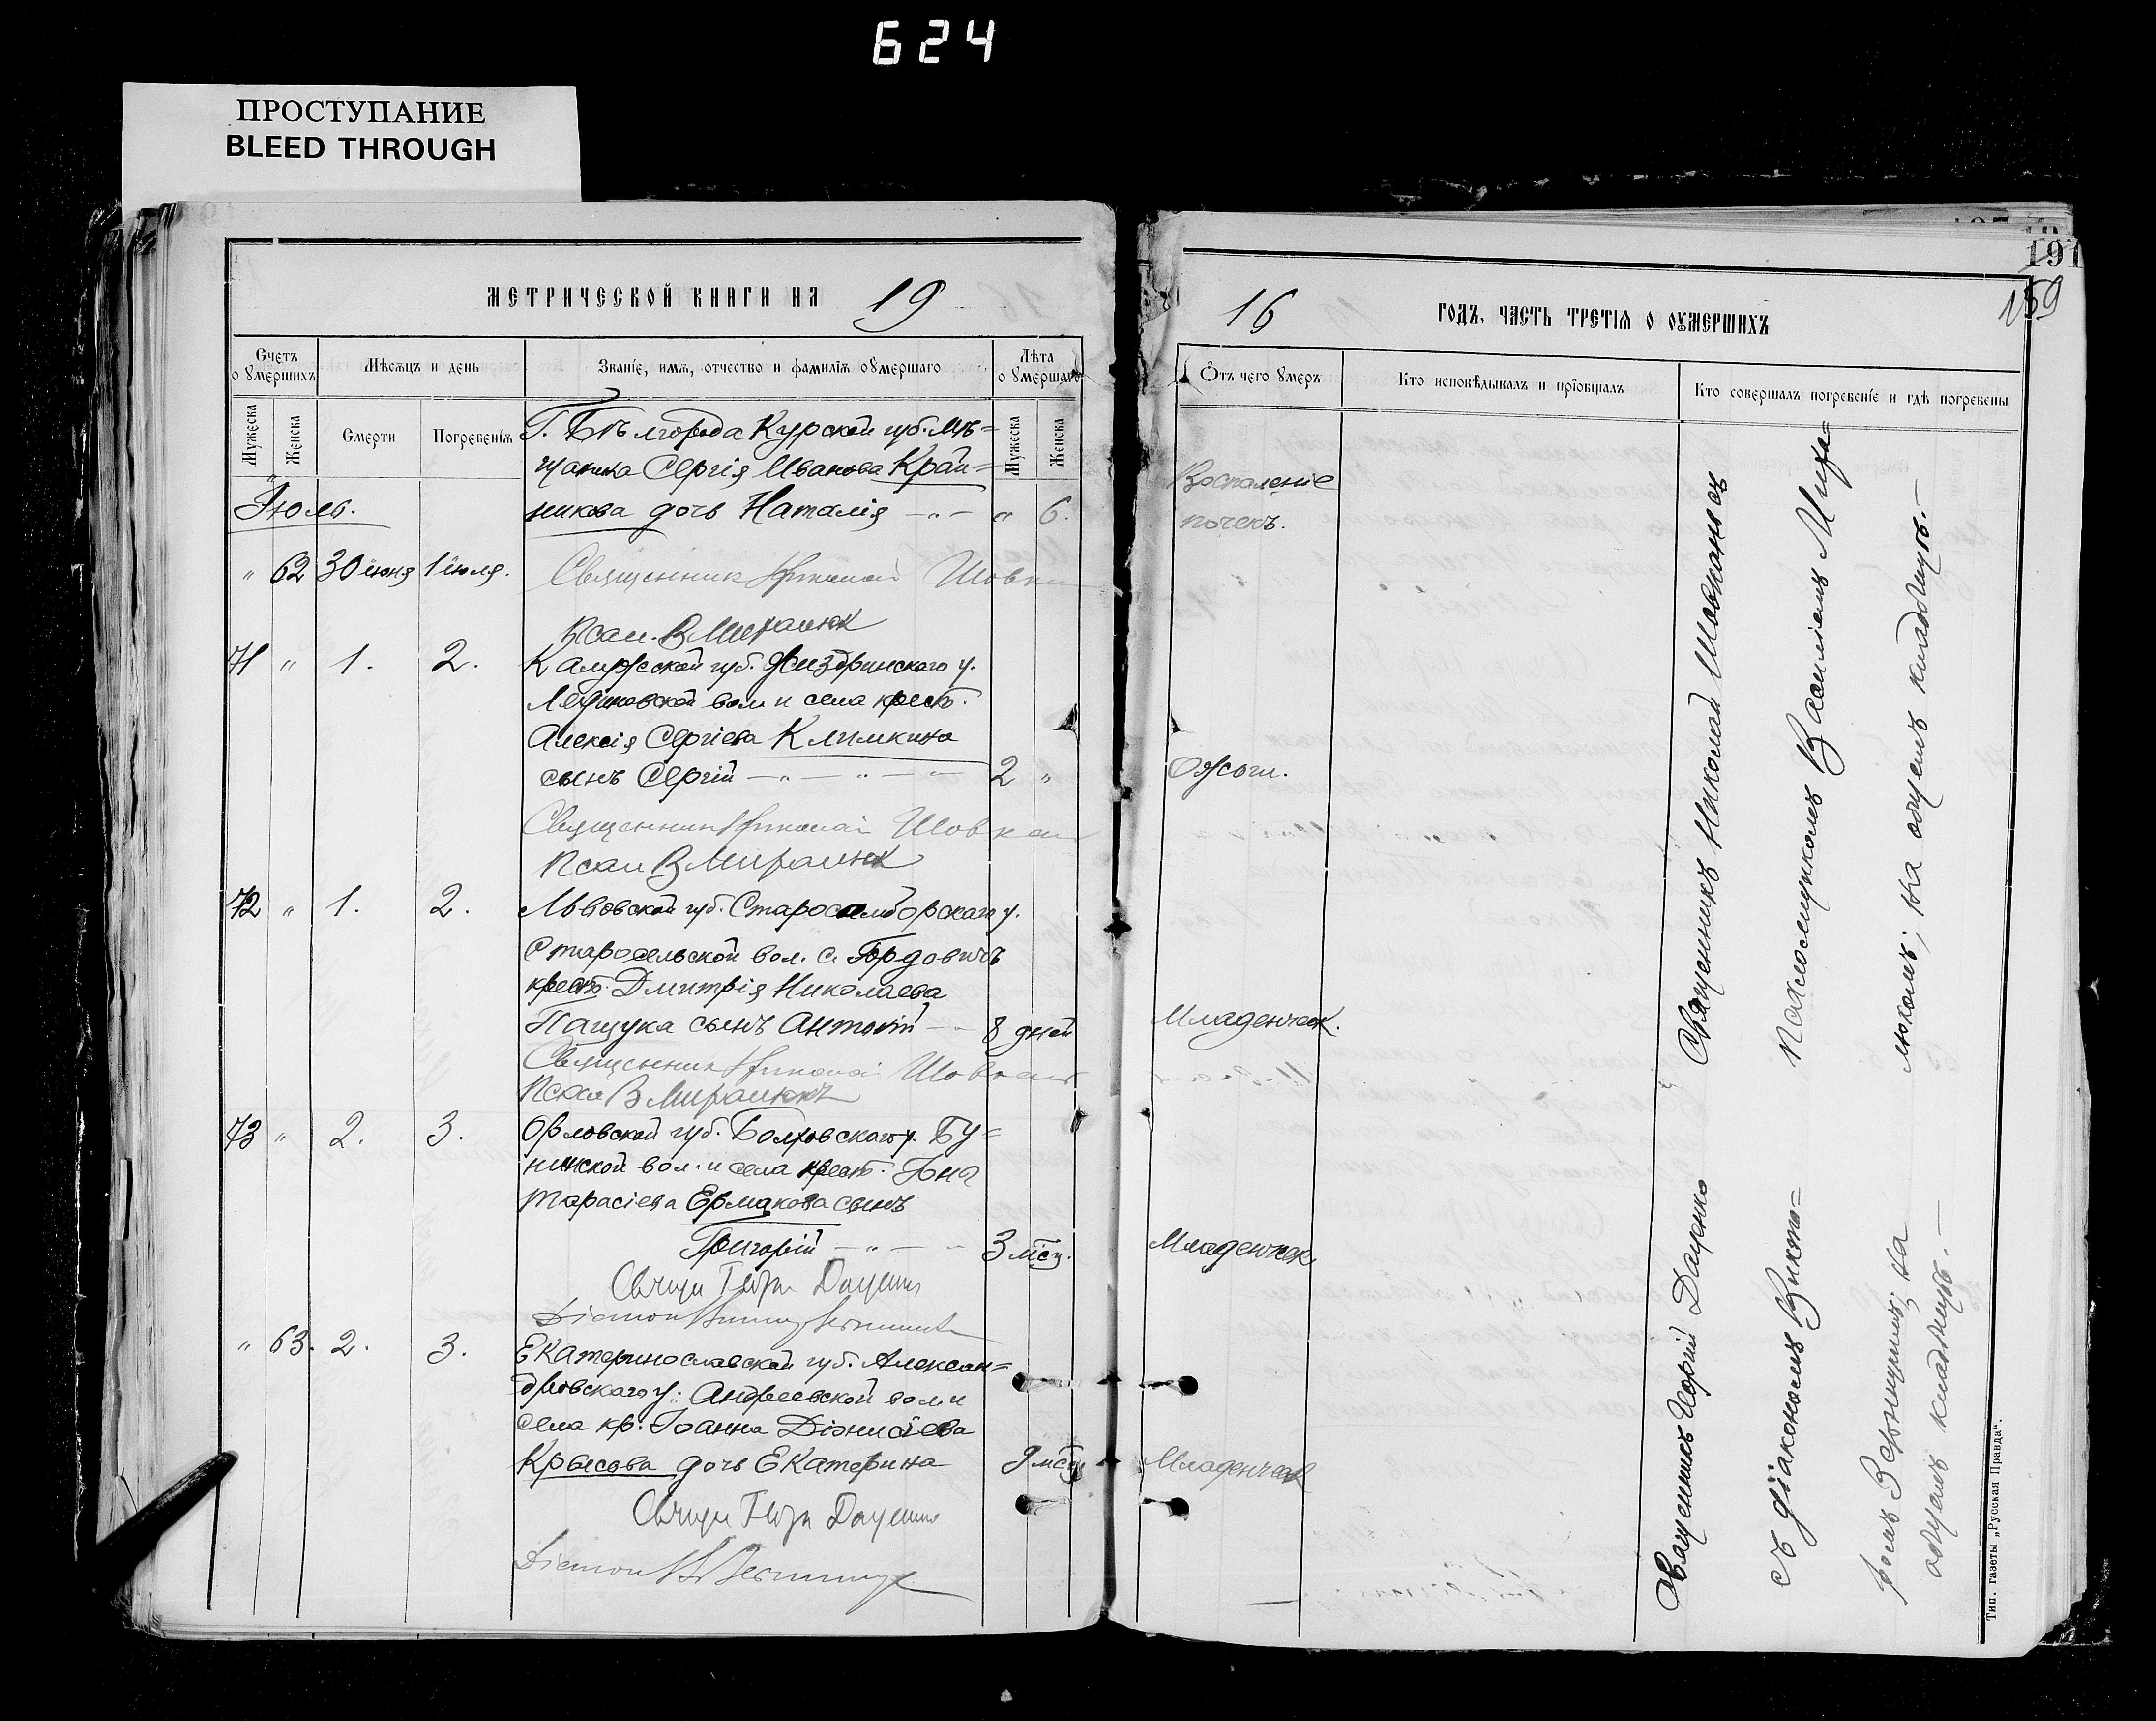 624
ПРОСТУПАНИЕ
BLEED THROUGH
МЕТРИЧЕСКОЙ КНИГИ НА 19
Счетъ о умершихъ
Мѣсяцъ и день
Званіе, имя, отчество и фамилія умершаго
Лѣта умершаго
Мужеска
Женска
Смерти
Погребенія
Мужеска
Женска
Г. Бѣлгорода Курской губ. мѣ=
щанина Сергія Иванова Край=
Іюль.
никова дочь Наталія — „ — „ 6.
„ 62 30 іюня 1 іюля.
Священник Николай Шовкан
Псал. В Миралюк
71 „ 1. 2. Калужской губ. Жиздринскаго у.
вол и села крест.
Алексія Сергіева Климкина
сынъ Сергій — „ — „ — „ 2 „
Священник Николай Шовкан
Псал В Миралюк
72 „ 1. 2. Львовской губ. Старосамборскаго у.
Старосельской вол. с.
крест. Дмитрія Николаева
Пащука сынъ Антоній — 8 дней
Священник Николай Шовкан
Псал В Миралюкъ
73 „ 2. 3. Орловской губ. Болховскаго у. Бу=
нинской вол. и села крест.
Тарасіева Ермакова сынъ
Григорій — „ — 3 мѣсц.
Свящ Георг Даценко
Діакон
„ 63. 2. 3. Екатеринославской губ. Алексан=
дровскаго у. Андреевской вол и
села кр. Іоанна Діонисіева
Крысова дочь Екатерина 9 мѣсц
Свящ Георг Даценко
Діакон
191
159
16 ГОДЪ, ЧАСТЬ ТРЕТІЯ О УМЕРШИХЪ
Отъ чего умеръ
Кто исповѣдывалъ и пріобщалъ
Кто совершалъ погребеніе и гдѣ погребены
Воспаленіе
почекъ.
Ожоги.
Младенческ.
Младенческ.
Младенческ
Священникъ Николай Шовканъ съ
псаломщикомъ Василіемъ Мира=
люкомъ; на общемъ кладбищѣ. —
Священникъ Георгій Даценко
съ діакономъ Викто=
ромъ на
общемъ кладбищѣ. —
Тип. газеты „Русская Правда“.